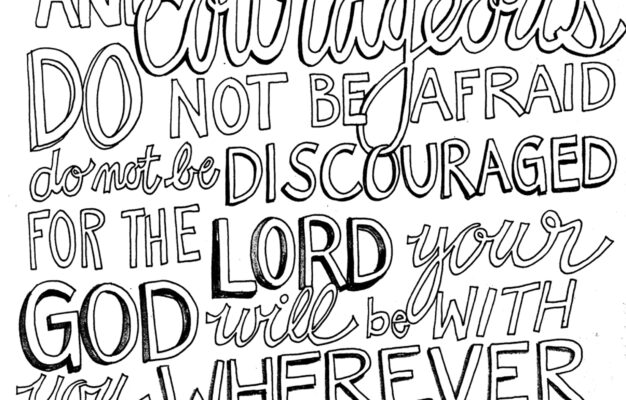 AND courageous
DO NOT BE AFRAID
do not be DISCOURAGED
FOR THE LORD your
GOD will be WITH
you WHEREVER